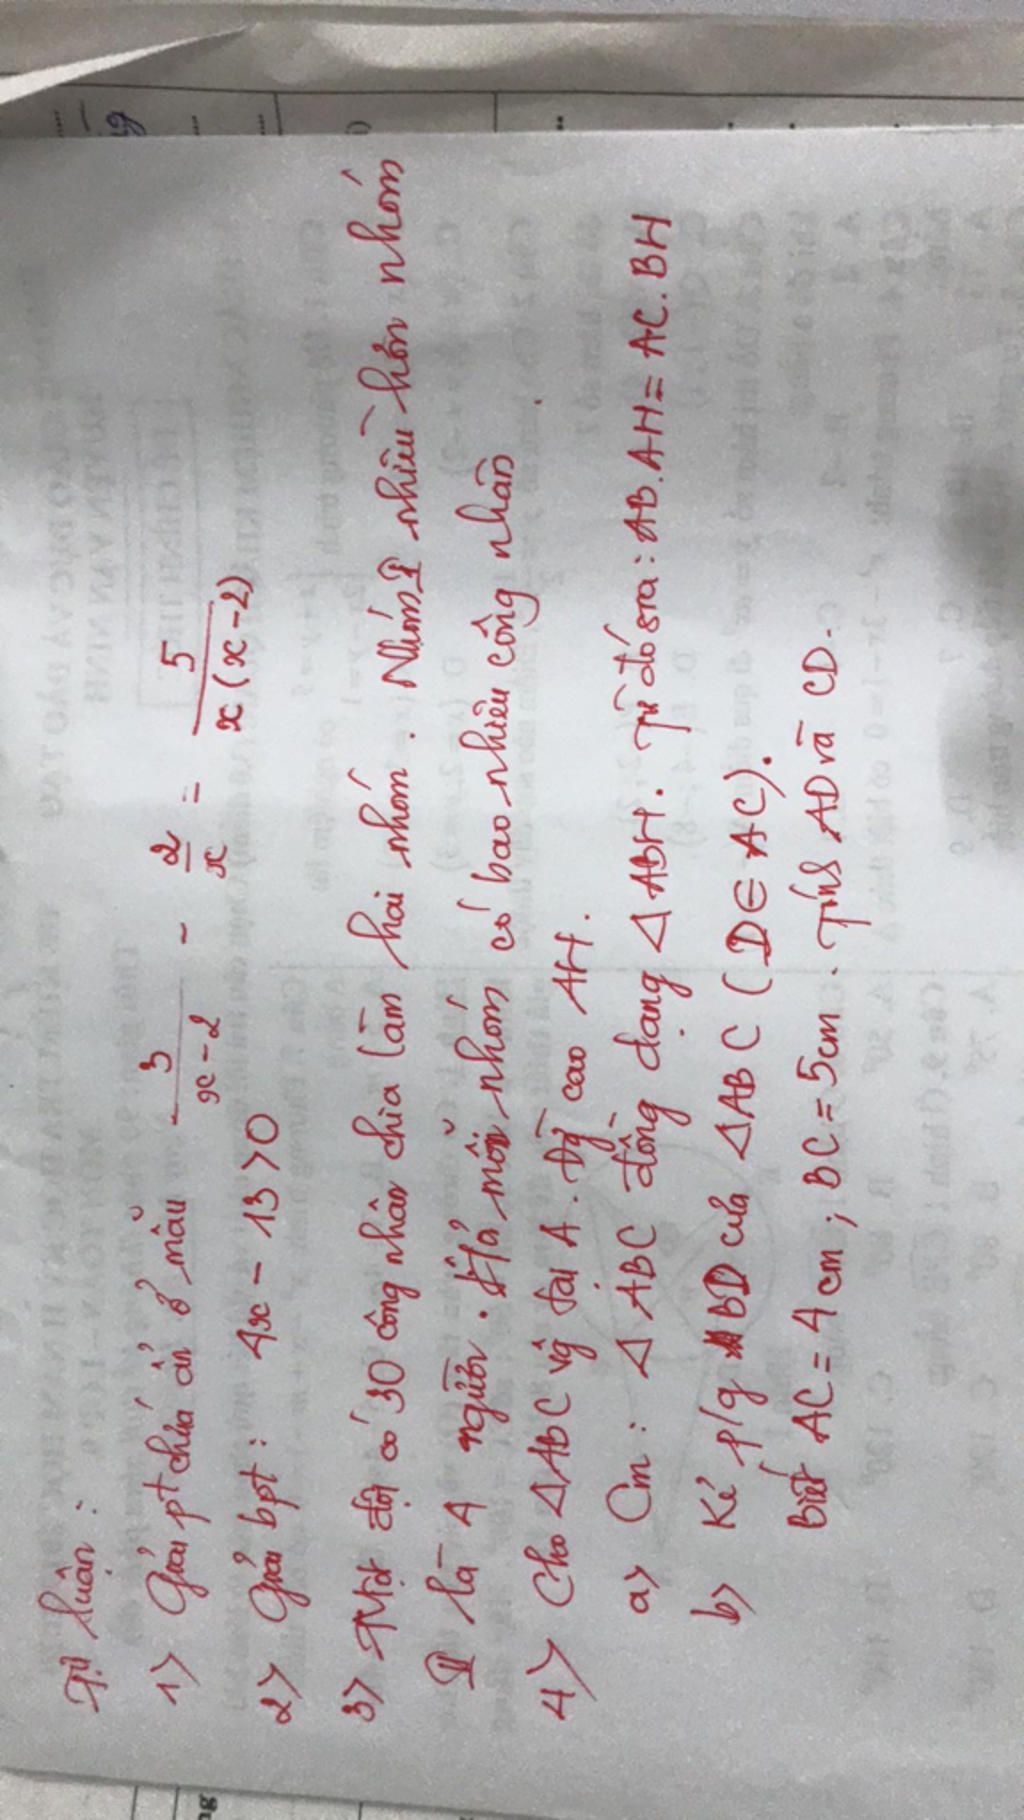 Tự luận :
1) Giải pt chứa ẩn ở mẫu 3/(x-2) - 2/x = 5/(x(x-2))
2) Giải bpt : 4x - 13 > 0
3) Một đội có 30 công nhân chia làm hai nhóm . Nhóm I nhiều hơn nhóm
II là 4 người . Hỏi mỗi nhóm có bao nhiêu công nhân
4) Cho △ABC vg tại A . Đg cao AH .
a) Cm : △ABC đồng dạng △ABH . Từ đó sra : AB.AH = AC.BH
b) Kẻ p/g BD của △ABC (D∈AC) .
Biết AC = 4cm ; BC = 5cm . Tính AD và CD .